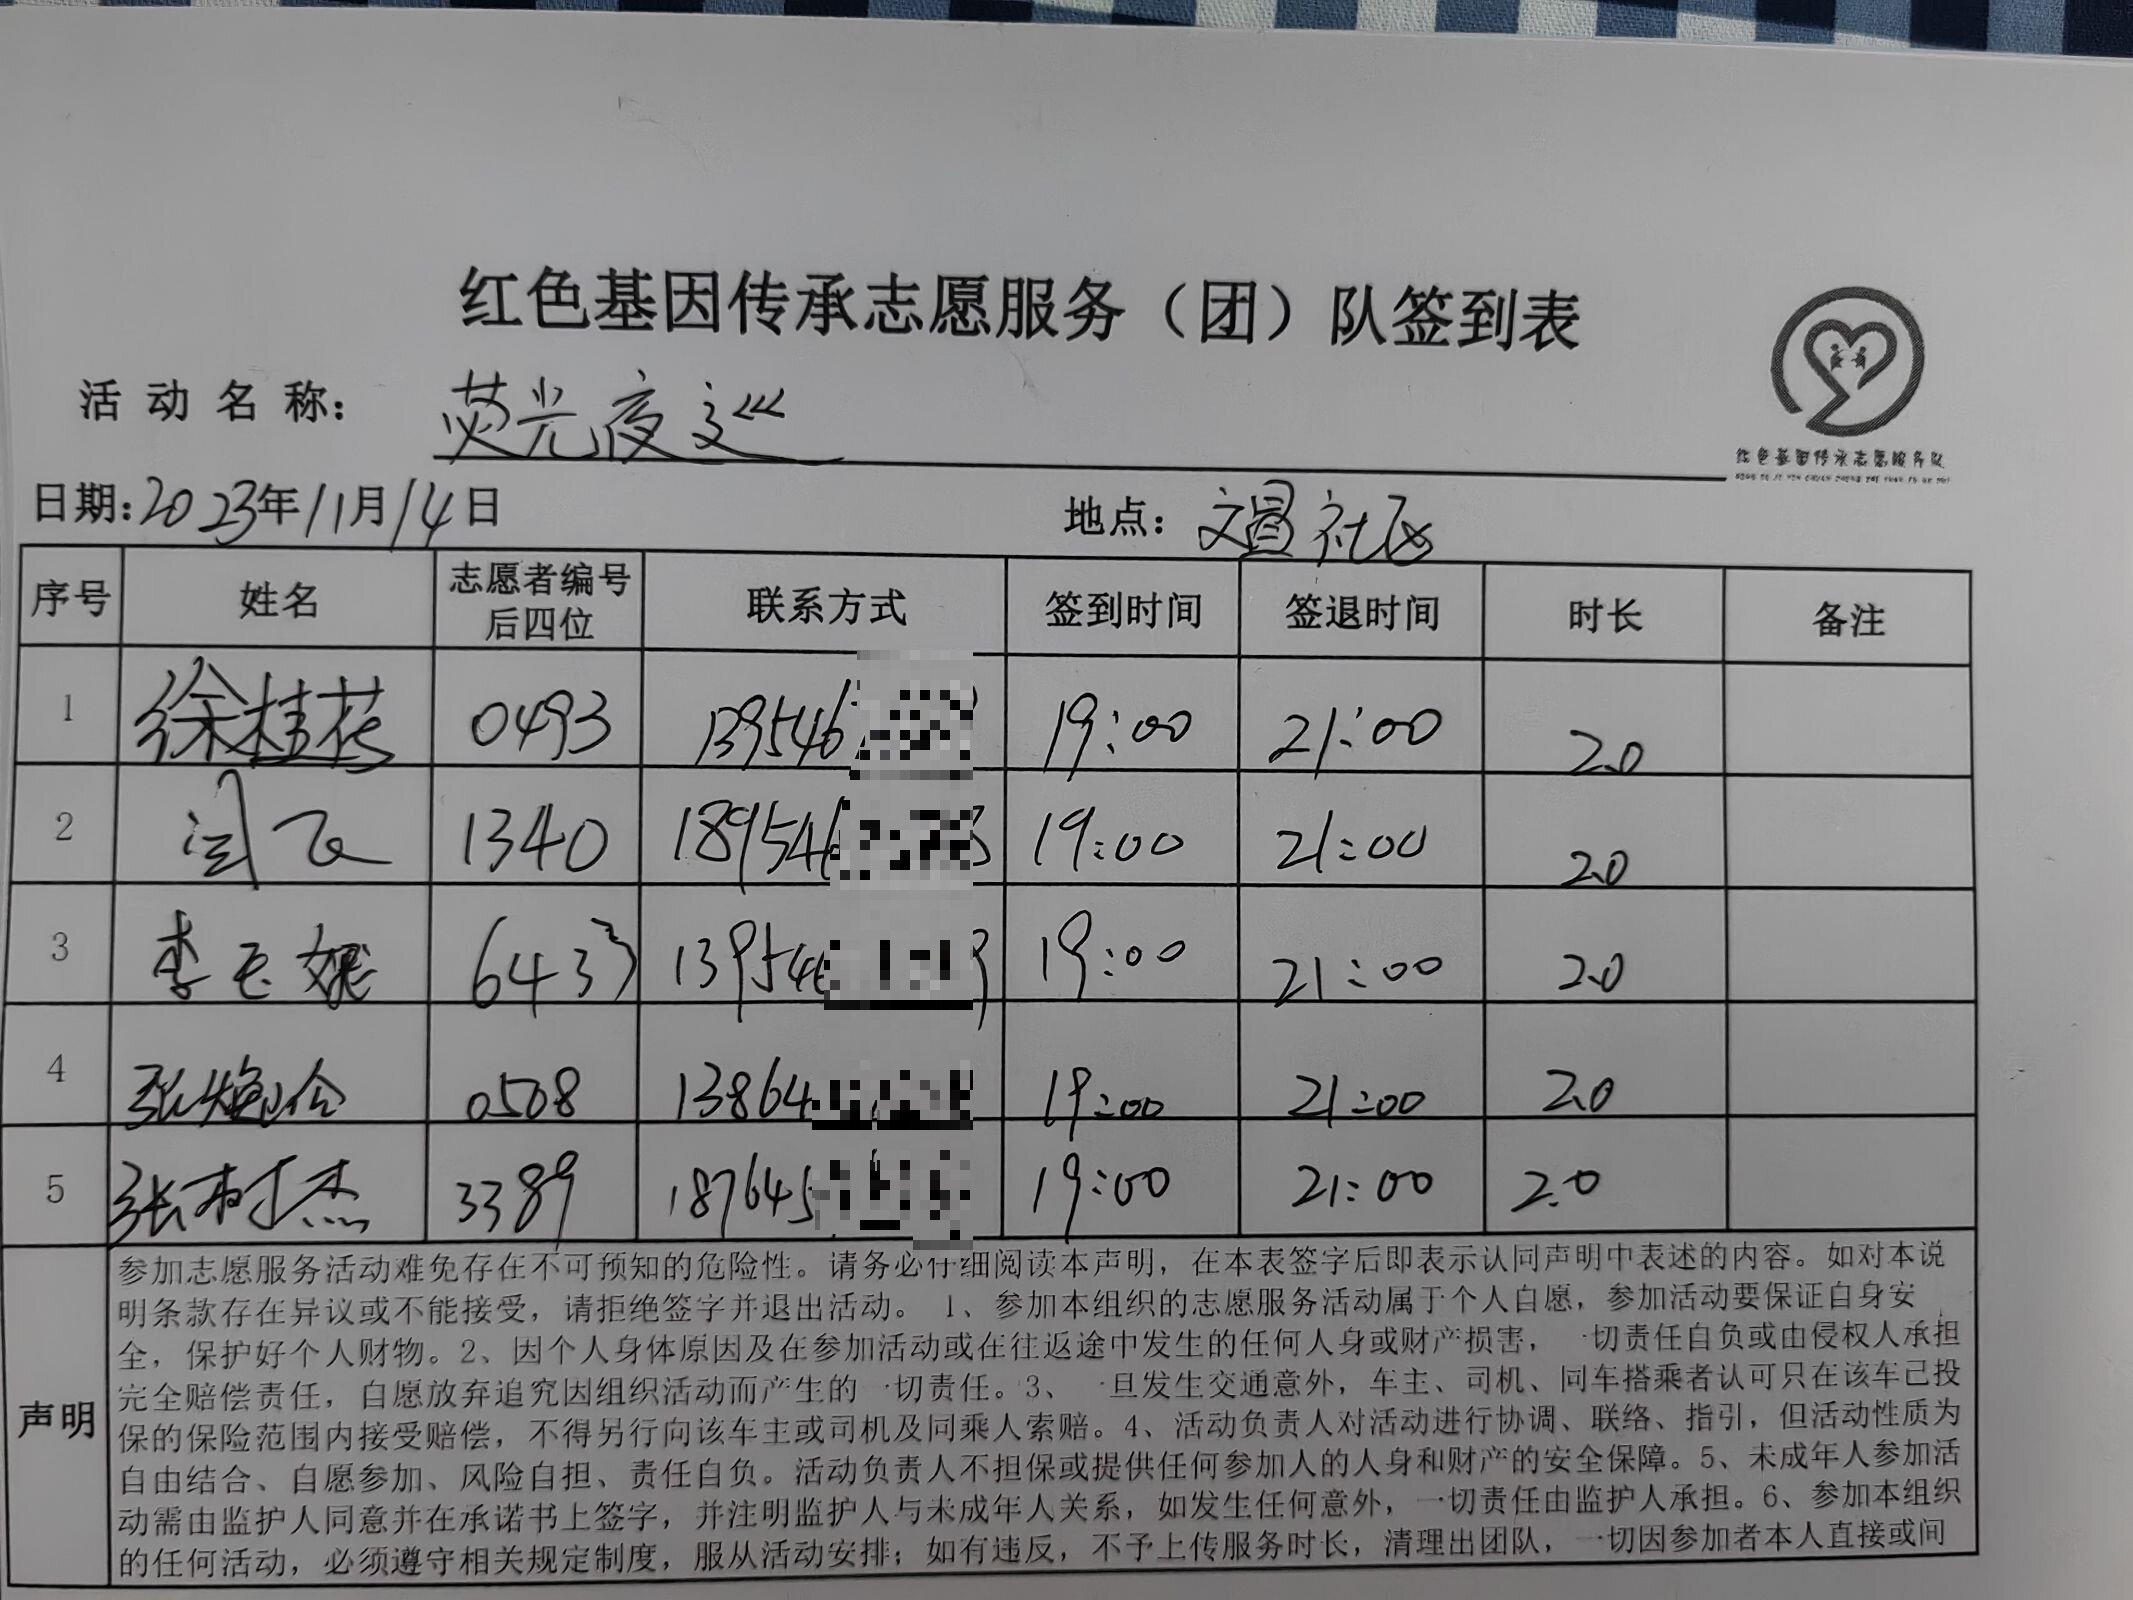 红色基因传承志愿服务（团）队签到表
红色基因传承志愿服务队
活动名称： 荧光夜巡
日期：2023年11月14日 地点：文昌社区
序号 姓名 志愿者编号后四位 联系方式 签到时间 签退时间 时长 备注
1 徐桂花 0493 139546 19:00 21:00 2.0
2 闫飞 1340 189546 19:00 21:00 2.0
3 李玉娥 6433 139546 19:00 21:00 2.0
4 张 0508 13864 19:00 21:00 2.0
5 张树杰 3389 187645 19:00 21:00 2.0
声明
参加志愿服务活动难免存在不可预知的危险性。请务必仔细阅读本声明，在本表签字后即表示认同声明中表述的内容。如对本说
明条款存在异议或不能接受，请拒绝签字并退出活动。 1、参加本组织的志愿服务活动属于个人自愿，参加活动要保证自身安
全，保护好个人财物。2、因个人身体原因及在参加活动或在往返途中发生的任何人身或财产损害，一切责任自负或由侵权人承担
完全赔偿责任，自愿放弃追究因组织活动而产生的一切责任。3、一旦发生交通意外，车主、司机、同车搭乘者认可只在该车已投
保的保险范围内接受赔偿，不得另行向该车主或司机及同乘人索赔。4、活动负责人对活动进行协调、联络、指引，但活动性质为
自由结合、自愿参加、风险自担、责任自负。活动负责人不担保或提供任何参加人的人身和财产的安全保障。5、未成年人参加活
动需由监护人同意并在承诺书上签字，并注明监护人与未成年人关系，如发生任何意外，一切责任由监护人承担。6、参加本组织
的任何活动，必须遵守相关规定制度，服从活动安排；如有违反，不予上传服务时长，清理出团队，一切因参加者本人直接或间